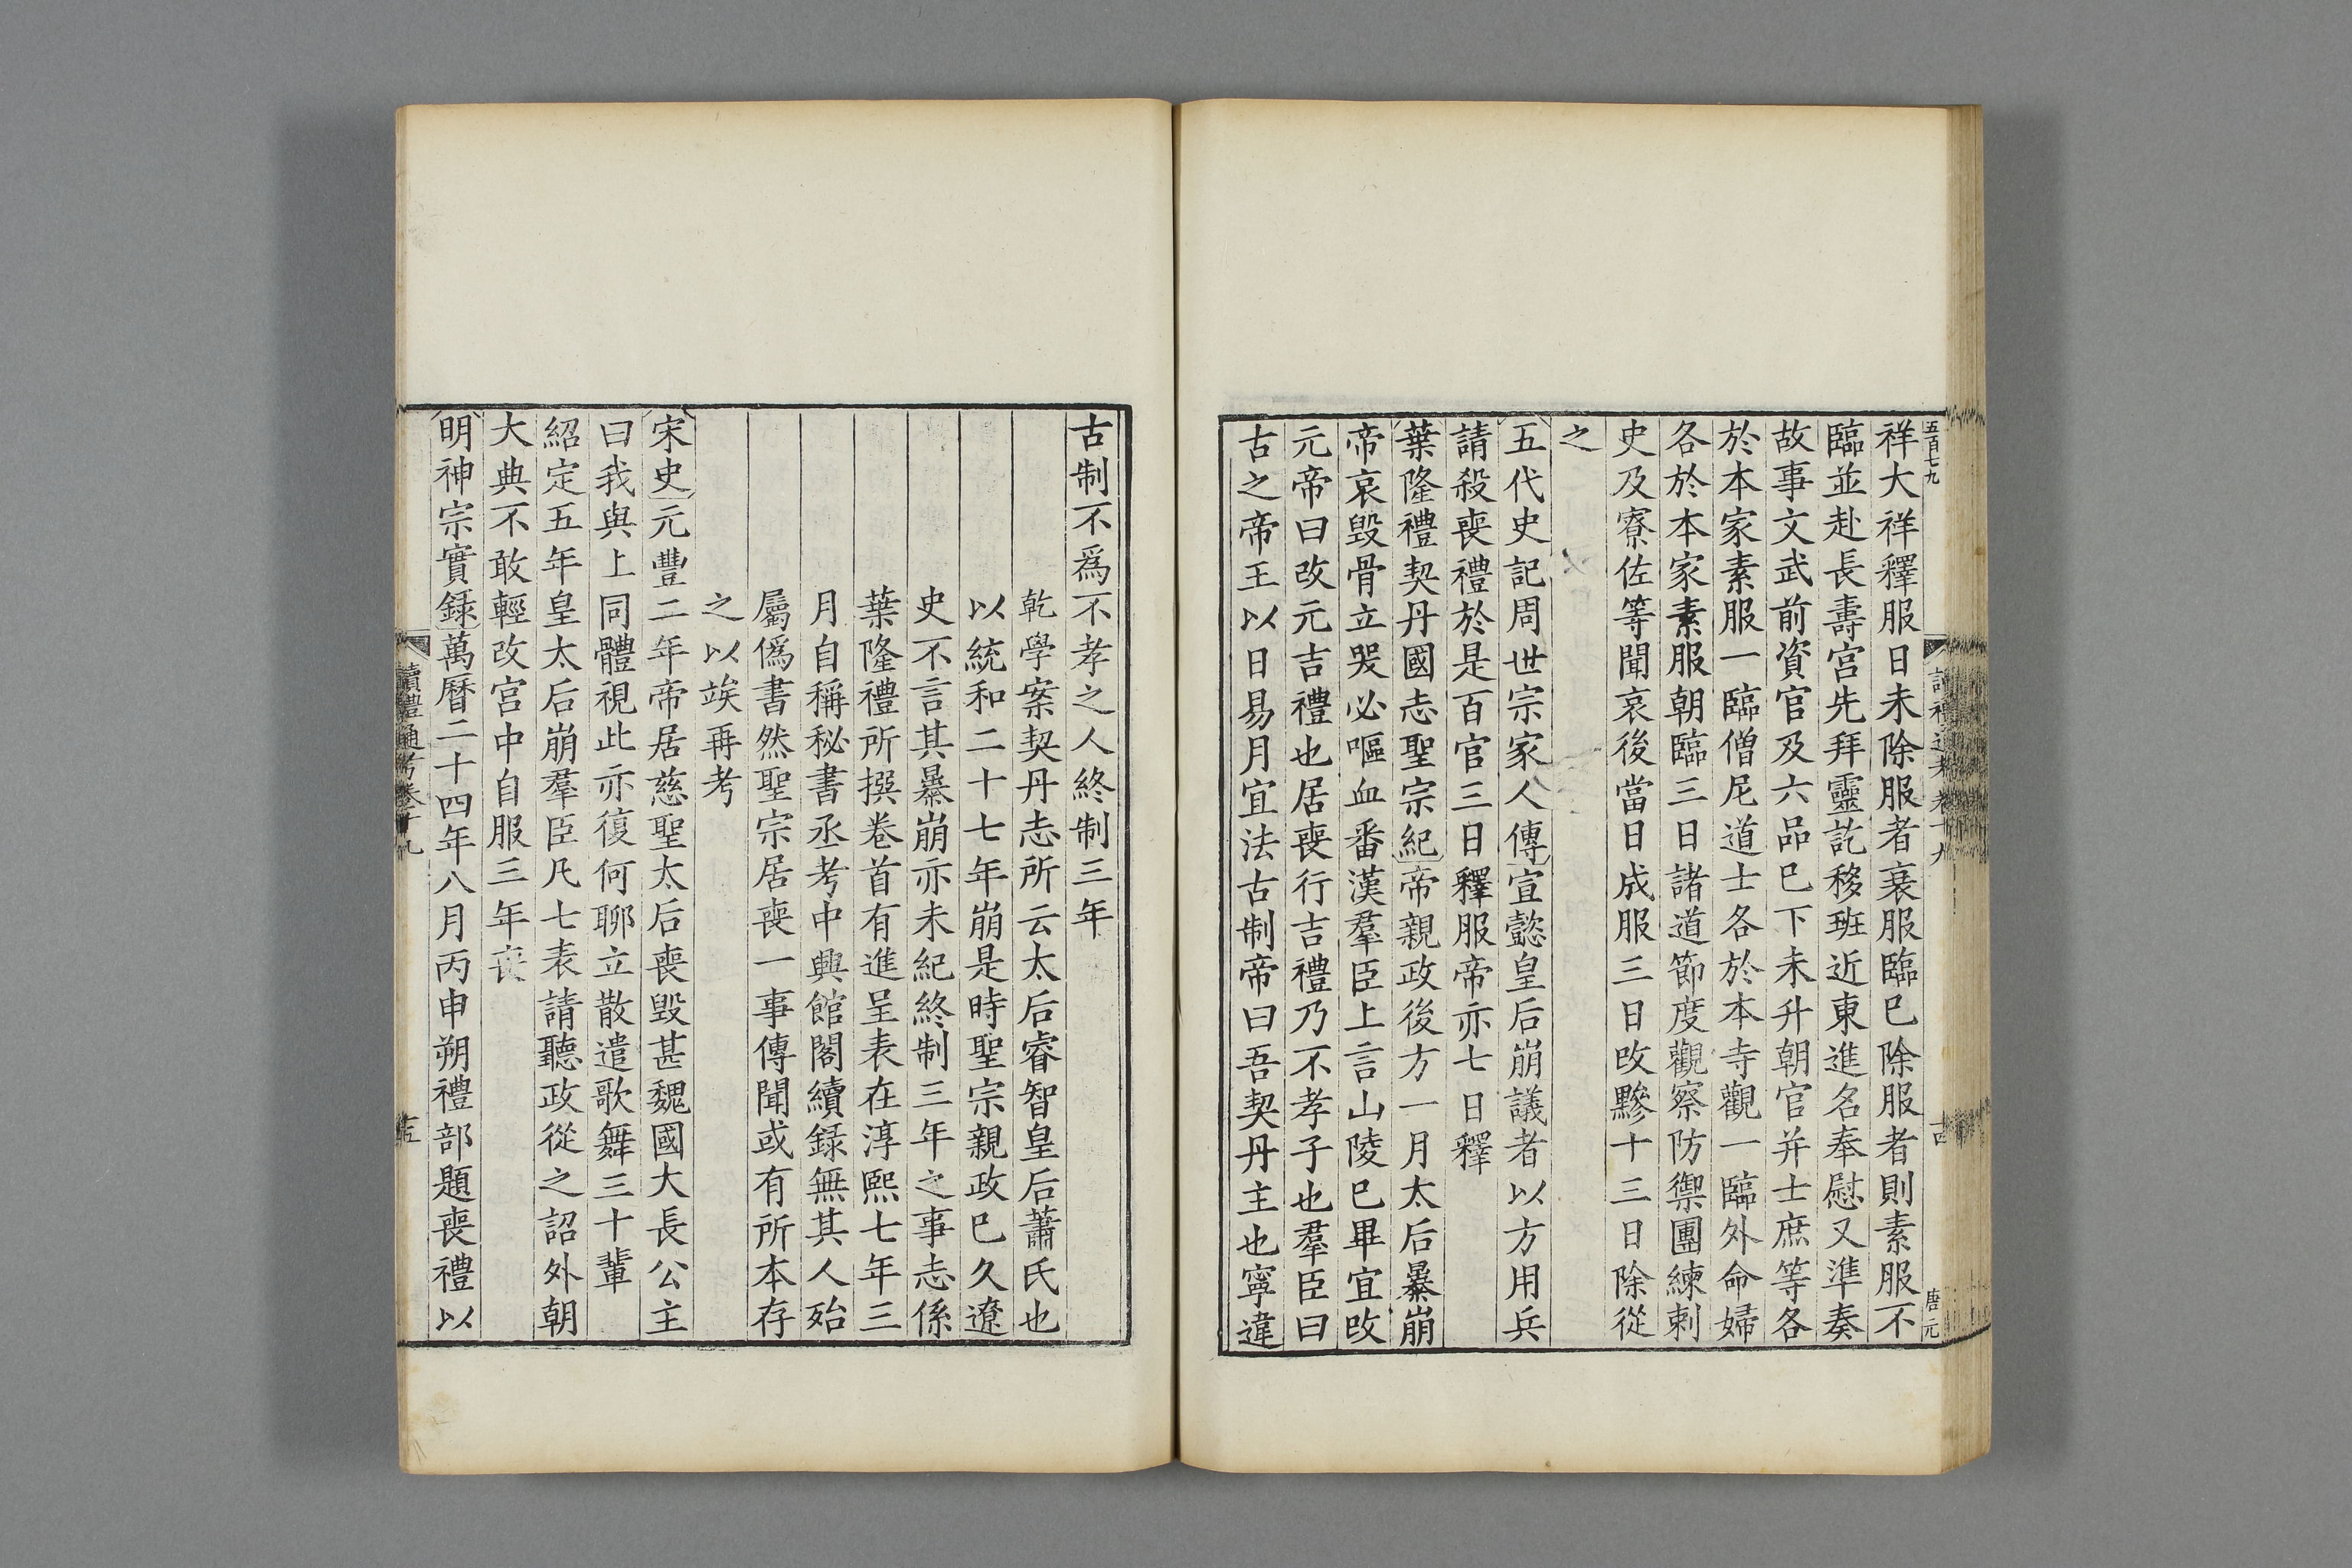 五百七九
讀禮通考卷十九
唐元
祥大祥釋服日未除服者衰服臨巳除服者則素服不
臨並赴長壽宮先拜靈訖移班近東進名奉慰又準奏
故事文武前資官及六品巳下未升朝官并士庶等各
於本家素服一臨僧尼道士各於本寺觀一臨外命婦
各於本家素服朝臨三日諸道節度觀察防禦團練刺
史及寮佐等聞哀後當日成服三日改黲十三日除從
之
五代史記周世宗家人傳宣懿皇后崩議者以方用兵
請殺喪禮於是百官三日釋服帝亦七日釋
葉隆禮契丹國志聖宗紀帝親政後方一月太后暴崩
帝哀毀骨立哭必嘔血番漢羣臣上言山陵巳畢宜改
元帝曰改元吉禮也居喪行吉禮乃不孝子也羣臣曰
古之帝王以日易月宜法古制帝曰吾契丹主也寧違
古制不爲不孝之人終制三年
乾學案契丹志所云太后睿智皇后蕭氏也
以統和二十七年崩是時聖宗親政巳久遼
史不言其暴崩亦未紀終制三年之事志係
葉隆禮所撰卷首有進呈表在淳熙七年三
月自稱秘書丞考中興館閣續錄無其人殆
屬僞書然聖宗居喪一事傳聞或有所本存
之以竢再考
宋史元豐二年帝居慈聖太后喪毀甚魏國大長公主
曰我與上同體視此亦復何聊立散遣歌舞三十輩
紹定五年皇太后崩羣臣凡七表請聽政從之詔外朝
大典不敢輕改宮中自服三年喪
明神宗實錄萬曆二十四年八月丙申朔禮部題喪禮以
讀禮通考卷十九